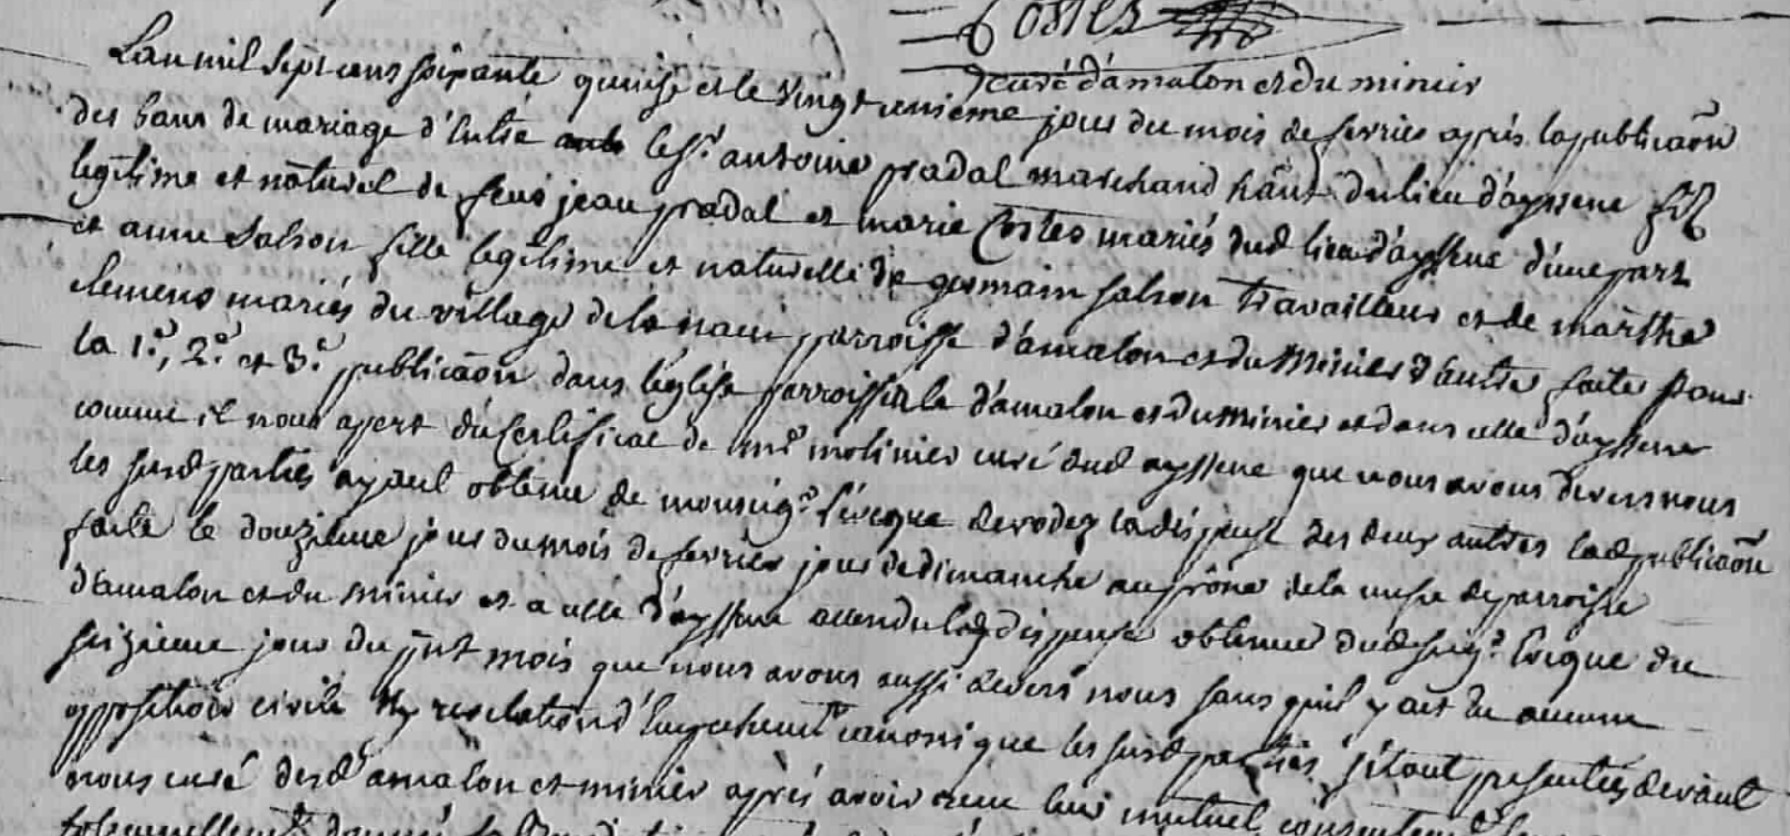 Costes
curé d'amalon et du minier
Lan mil sept cens soixante quinse et le vingt unieme jour du mois de fevrier aprés la publicaõn
des bans de mariage d'entre le sr. antoine pradal marchand hãnt du lieu d'ayssene fils
legitime et nãturel de feus jean pradal et marie Costes mariés dud lieu d'ayssene d'une part
et anne salson fille legitime et naturelle de germain salson travailleur et de marthe
clemens mariés du village de la parroisse d'amalon et du Minier d'autre faite pour
la 1.e, 2.e et 3.e publicaõn dans l'église parroissiale d'amalon et du minier et dans celle d'ayssene
comme il nous apert du certificat de mr molinier curé dud ayssene que nous avons devers nous
les susd parties ayant obtenue de monseigr. l'éveque de rodez la dispense des deux autres lad publicaõn
faite le douzieme jour du mois de fevrier jour de dimanche au prône de la messe de parroisse
d'amalon et du minier et a celle d'ayssene attendu lad dispense obtenue dud seigr. Eveque du
seizieme jour du pnt mois que nous avons aussi devers nous sans qu'il y ait eu aucune
opposition civile ny revelation d'Empechemt canonique les susd parties s'étant presentées devant
nous curé desd amalon et minier aprés avoir receu leur mutuel consentemt
solemnellemt donné la